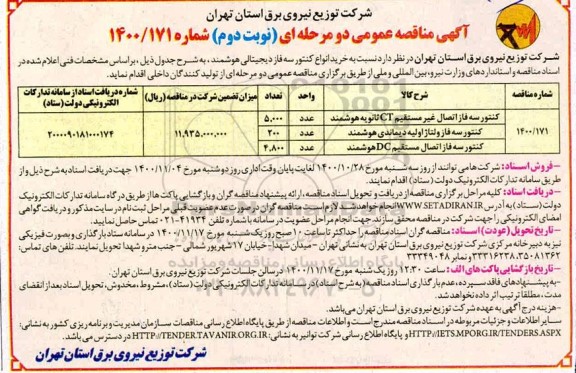 شرکت توزیع نیروی برق استان تهران
آگهی مناقصه عمومی دو مرحله ای (نوبت دوم) شماره ۱۴۰۰/۱۷۱
شرکت توزیع نیروی برق استان تهران در نظر دارد نسبت به خرید انواع کنتور سه فاز دیجیتالی هوشمند، به شرح جدول ذیل، براساس مشخصات فنی اعلام شده در
اسناد مناقصه و استانداردهای وزارت نیرو، بین المللی و ملی از طریق برگزاری مناقصه عمومی دو مرحله ای از تولید کنندگان داخلی اقدام نماید.
شماره مناقصه شرح کالا واحد تعداد میزان تضمین شرکت در مناقصه (ریال) شماره دریافت اسناد از سامانه تدارکات الکترونیکی دولت (ستاد)
۱۴۰۰/۱۷۱ کنتور سه فاز اتصال غیر مستقیم CT ثانویه هوشمند عدد ۵,۰۰۰ ۱۱,۹۳۵,۰۰۰,۰۰۰ ۲۰۰۰۰۹۰۱۸۱۰۰۰۱۷۴
کنتور سه فاز ولتاژ اولیه دیماندی هوشمند عدد ۲۰۰
کنتور سه فاز اتصال مستقیم DC هوشمند عدد ۴,۸۰۰
-فروش اسناد: شرکت ها می توانند از روز سه شنبه مورخ ۱۴۰۰/۱۰/۲۸ لغایت پایان وقت اداری روز دوشنبه مورخ ۱۴۰۰/۱۱/۰۴ جهت دریافت اسناد به شرح ذیل و از
طریق سامانه تدارکات الکترونیک دولت (ستاد) اقدام نمایند.
-دریافت اسناد: کلیه مراحل برگزاری مناقصه از دریافت و تحویل اسناد مناقصه، ارائه پیشنهاد مناقصه گران و بازگشایی پاکت ها از طریق درگاه سامانه تدارکات الکترونیک
دولت (ستاد) به آدرس WWW.SETADIRAN.IR انجام خواهد شد. لازم است مناقصه گران در صورت عدم عضویت قبلی مراحل ثبت نام در سایت مذکور و دریافت گواهی
امضای الکترونیکی را جهت شرکت در مناقصه محقق سازند. جهت انجام مراحل عضویت در سامانه با شماره تلفن ۴۱۹۳۴-۰۲۱ تماس حاصل نمایید.
-تاریخ تحویل (عودت) اسناد: مناقصه گران اسناد مناقصه را حداکثر تا ساعت ۱۰ صبح روز یک شنبه مورخ ۱۴۰۰/۱۱/۱۷ در سامانه ستاد بارگذاری و بصورت فیزیکی
نیز به دبیرخانه مرکزی شرکت توزیع نیروی برق استان تهران به نشانی تهران - میدان شهدا - خیابان ۱۷ شهریور شمالی - جنب مترو شهدا تحویل نمایند. تلفن های تماس:
۳۵۰۸۱۳۶۲، ۳۳۳۱۶۲۳۸ و نمابر ۳۳۳۴۹۰۴۸
-تاریخ بازگشایی پاکت های الف: ساعت ۱۲:۳۰ روز یک شنبه مورخ ۱۴۰۰/۱۱/۱۷ در سالن جلسات شرکت توزیع نیروی برق استان تهران.
-به پیشنهادهای فاقد سپرده، عدم بارگذاری اسناد مناقصه (به شرح اسناد) در سامانه تدارکات الکترونیکی دولت (ستاد)، مشروط، مخدوش، تحویل اسناد بعد از انقضای
مدت، مطلقا ترتیب اثر داده نخواهد شد.
-هزینه درج آگهی به عهده شرکت توزیع نیروی برق استان تهران می باشد.
-سایر اطلاعات و جزئیات مربوطه در اسناد مناقصه مندرج است و اطلاعات مناقصه از طریق پایگاه اطلاع رسانی مناقصات سازمان مدیریت و برنامه ریزی کشور به نشانی:
HTTP://IETS.MPORG.IR/TENDERS.ASPX و پایگاه اطلاع رسانی شرکت توانیر به نشانی: HTTP://TENDER.TAVANIR.ORG.IR در دسترس می باشد.
شرکت توزیع نیروی برق استان تهران